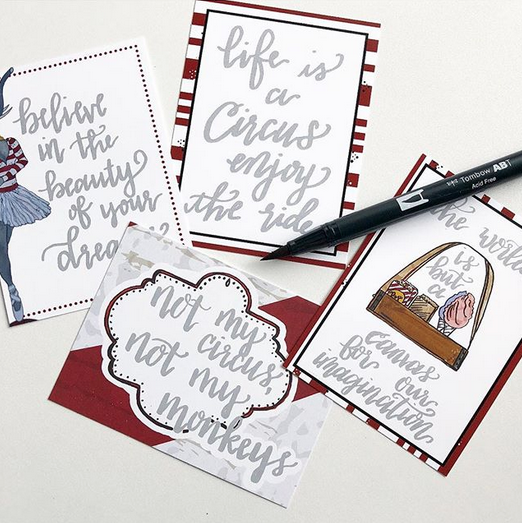 believe
in the
beauty
of your
dreams
life is
a
Circus
enjoy
the ride
Tombow ABT
Acid Free
the world
is
but a
canvas
for our
imagination
not my
circus
not my
monkeys